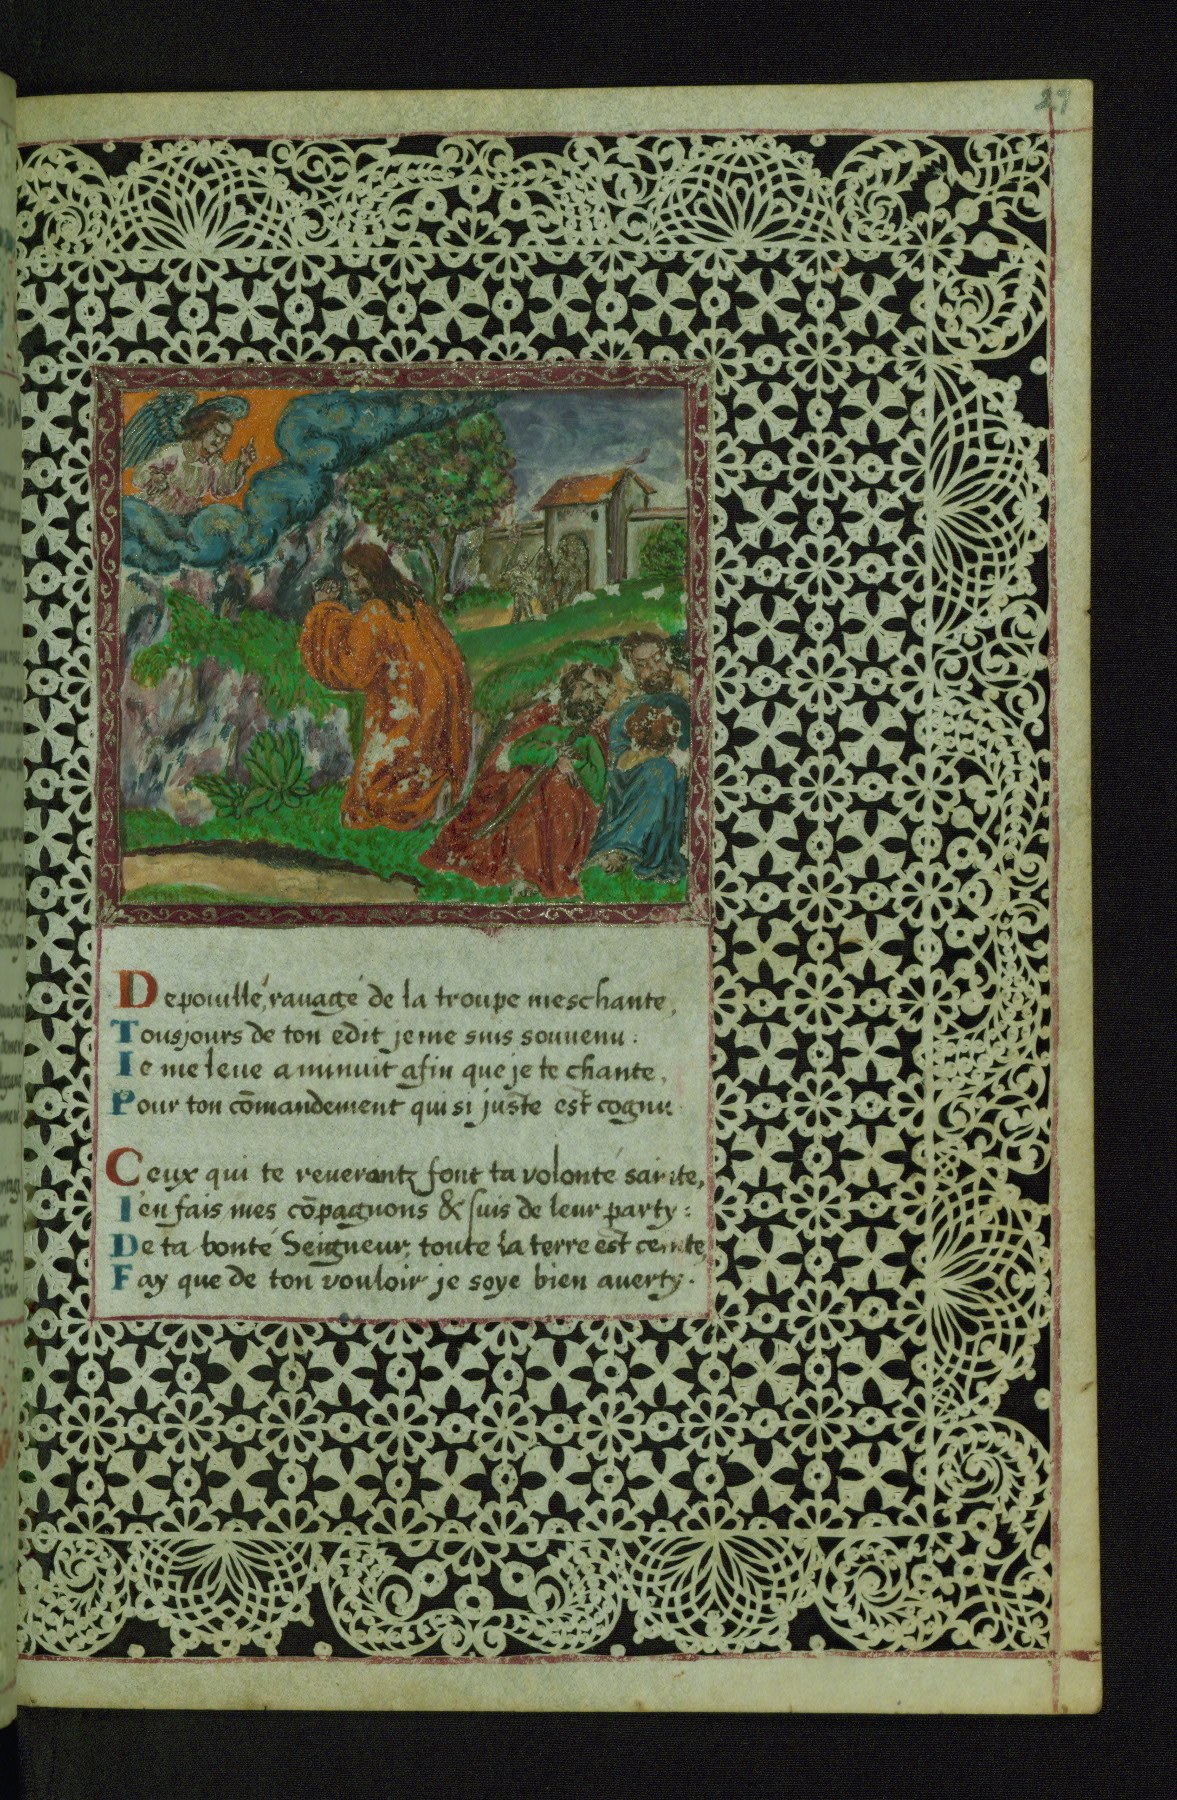 Depouillé, rauagé de la troupe meschante,
Tousjours de ton edit je me suis souuenu :
Ie me leue a minuit afin que je te chante,
Pour ton cōmandement qui si juste est cognu.
Ceux qui te reuerantz font ta volonté sainte,
I'en fais mes cōpagnons & suis de leur party :
De ta bonté Seigneur, toute la terre est ceinte,
Fay que de ton vouloir je soye bien auerty.